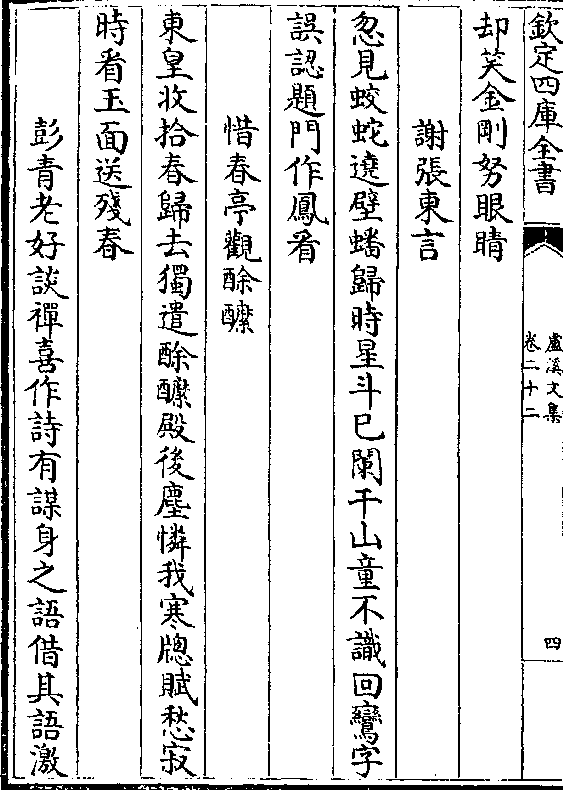 欽定四庫全書
盧溪文集
卷二十二
四
却笑金剛努眼睛
謝張東言
忽見蛟蛇遶壁蟠歸時星斗已闌干山童不識回鸞字
誤認題門作鳳看
惜春亭觀酴醿
東皇收拾春歸去獨遣酴醿殿後塵憐我寒牕賦愁寂
時看玉面送殘春
彭青老好談禪喜作詩有謀身之語借其語激